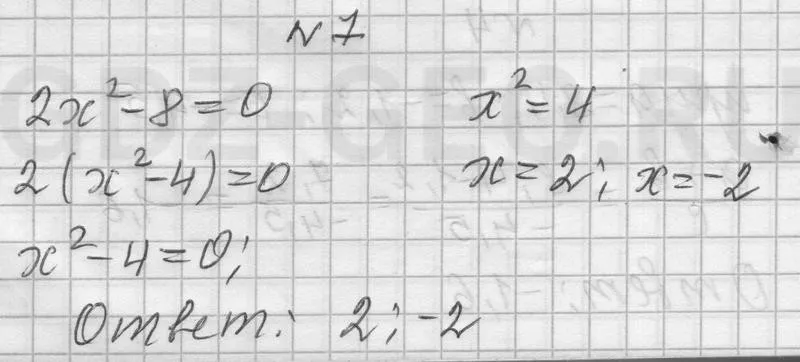 № 7
2x² - 8 = 0
2(x² - 4) = 0
x² - 4 = 0;
x² = 4
x = 2; x = -2
Ответ: 2; -2